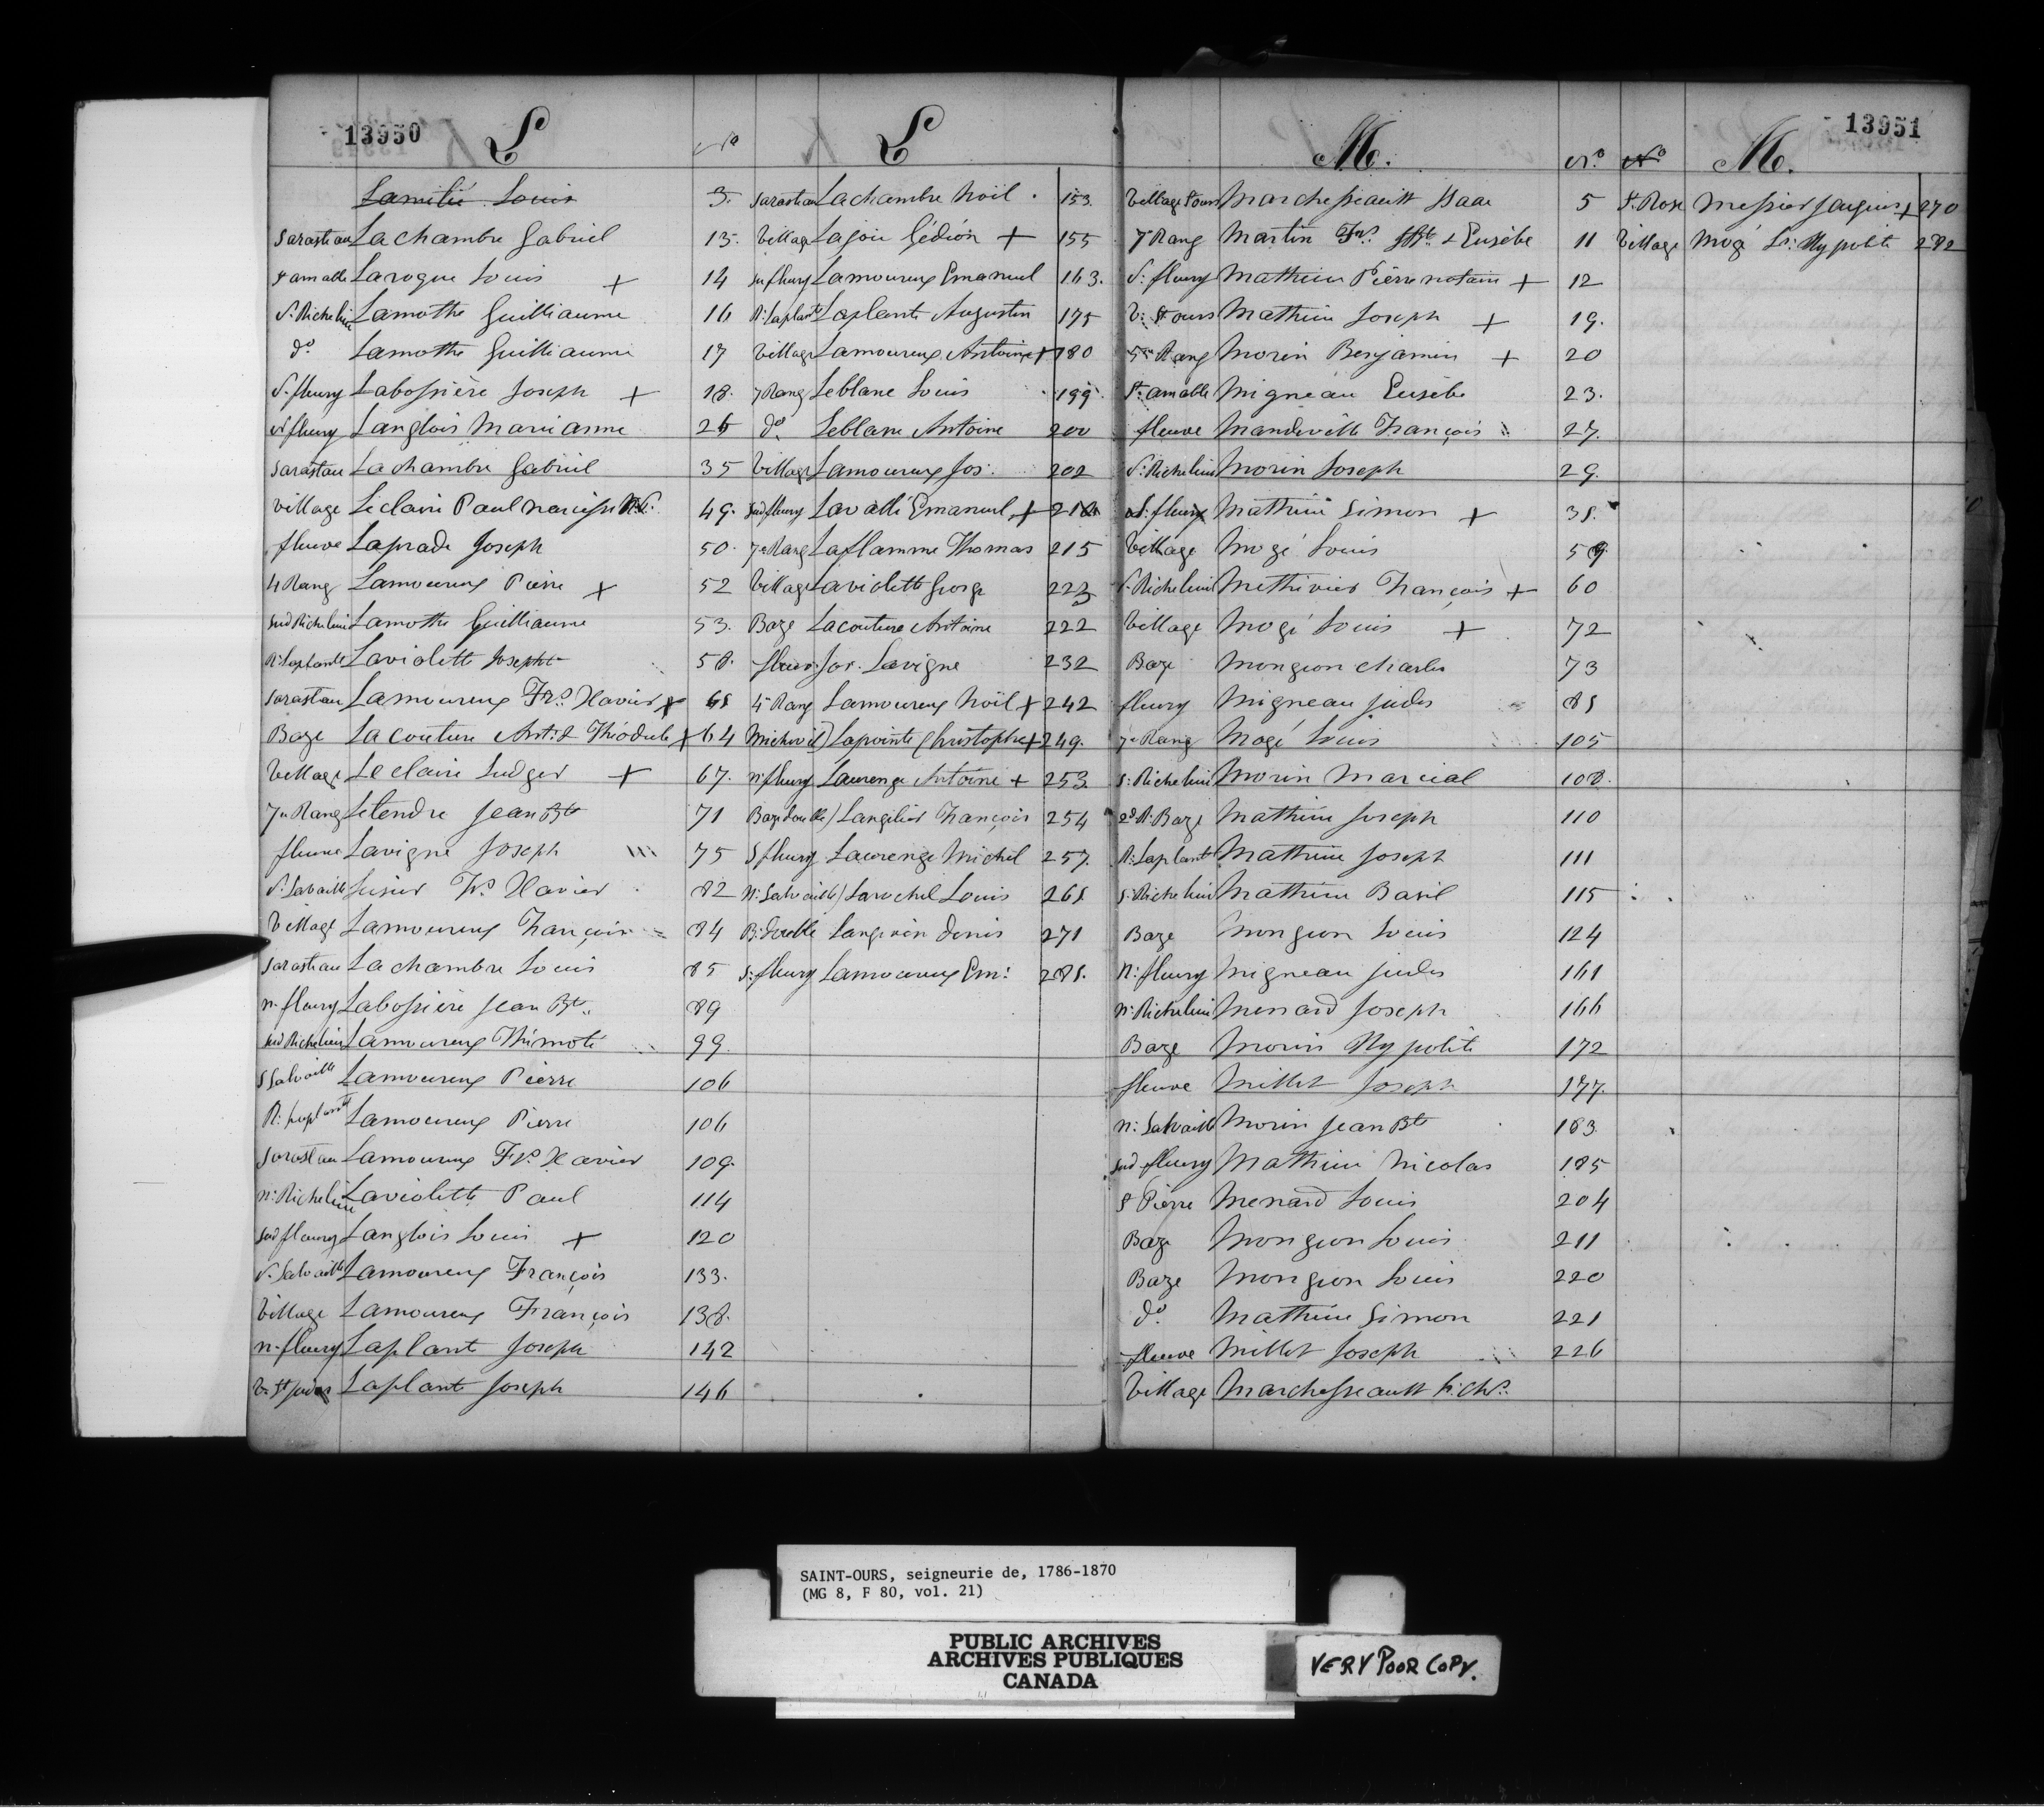 13950 L
Nº
L
Lamitié Louis 3.
Sarastau Lachambre Gabriel 13.
St amable Laroque Louis + 14
S. Richelieu Lamothe Guilliaume 16
do Lamothe Guilliaume 17
S. fleury Labossière Joseph + 18.
N fleury Langlois Marianne 26
Sarastau Lachambre Gabriel 35
Village Leclaire Paul Narcisse 49.
fleuve Laprade Joseph 50.
4 Rang Lamoureux Pierre + 52
Sud Richelieu Lamothe Guilliaume 53.
R: Laplante Laviolette Joseph 58.
Sarastau Lamoureux Frs. Xavier + 61
Baze Lacouture Ant. & Théodule + 64
Village Leclaire Ludger + 67.
7e Rang Letendre Jean Bte 71
fleuve Lavigne Joseph 75
S. Salvaille Lusier Frs Xavier 82
Village Lamoureux François 84
Sarastau Lachambre Louis 85
n. fleury Labossière Jean Bte 89
Sud Richelieu Lamoureux Thimoté 99.
S Salvaille Lamoureux Pierre 106
R: Laplante Lamoureux Pierre 106
Sarastau Lamoureux Frs. Xavier 109.
n: Richelieu Laviolette Paul 114
Sud fleury Langlois Louis + 120
S. Salvaille Lamoureux François 133.
Village Lamoureux François 138.
n. fleury Laplant Joseph 142
V. St Judes Laplante Joseph 146
Sarastau Lachambre Noël 153.
Village Lajoie Gédéon + 155
Sufleury Lamoureux Emanuel 163.
R: Laplante Laplante Augustin 175
Village Lamoureux Antoine + 180
7 Rang Leblanc Louis 199
do. Leblanc Antoine 200
Village Lamoureux Jos: 202
Sud fleury Lavallé Emanuel +
7e Rang Laflamme Thomas 215
Village Laviolette George 223
Baze Lacouture Antoine 222
fleuve Jos. Lavigne 232
4e Rang Lamoureux Noël + 242
Lapointe Christophe + 249.
n. fleury Laurenge Antoine + 253.
Baze double) Langilier François 254
S fleury Laurenge Michel 257.
N: Salvaille) Larochel Louis 261
B: double Langevin Denis 271
S: fleury Lamoureux Em: 281.
13951
M. Nº
Nº M.
Village St ours Marchessault Isaac 5
7e Rang Martin Frs. & Eusèbe 11
S: fleury Mathieu Pierre notaire + 12
V: St ours Mathieu Joseph + 19.
5me Rang Morin Benjamin + 20
St: amable Migneau Eusèbe 23.
fleuve Mandeville François 27.
S: Richelieu Morin Joseph 29.
S. fleury Mathieu Simon + 31.
Village Mogé Louis 59
S. Richelieu Methivier François + 60
Village Mogé Louis + 72
Baze Mongeon Charles 73
fleury Migneau Judes 81
7e Rang Mogé Louis 105
S: Richelieu Morin Marcial 108.
2d R: Baze Mathieu Joseph 110
R: Laplant Mathieu Joseph 111
S: Richelieu Mathieu Basil 115
Baze Mongeon Louis 124
N: fleury Migneau Judes 161
N: Richelieu Menard Joseph 166
Baze Morin Hypolite 172
fleuve Millet Joseph 177.
N: Salvaille Morin Jean Bte 183
Sud fleury Mathieu Nicolas 185
St Pierre Menard Louis 204
Baze Mongeon Louis 211
Baze Mongeon Louis 220
do. Mathieu Simon 221
fleuve Millet Joseph 226
Village Marchessault
St. Rose Messier + 270
Village Mogé Ls: Hypolite 282
SAINT-OURS, seigneurie de, 1786-1870
(MG 8, F 80, vol. 21)
PUBLIC ARCHIVES
ARCHIVES PUBLIQUES
CANADA
VERY POOR COPY.